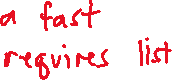 a fast
requires list